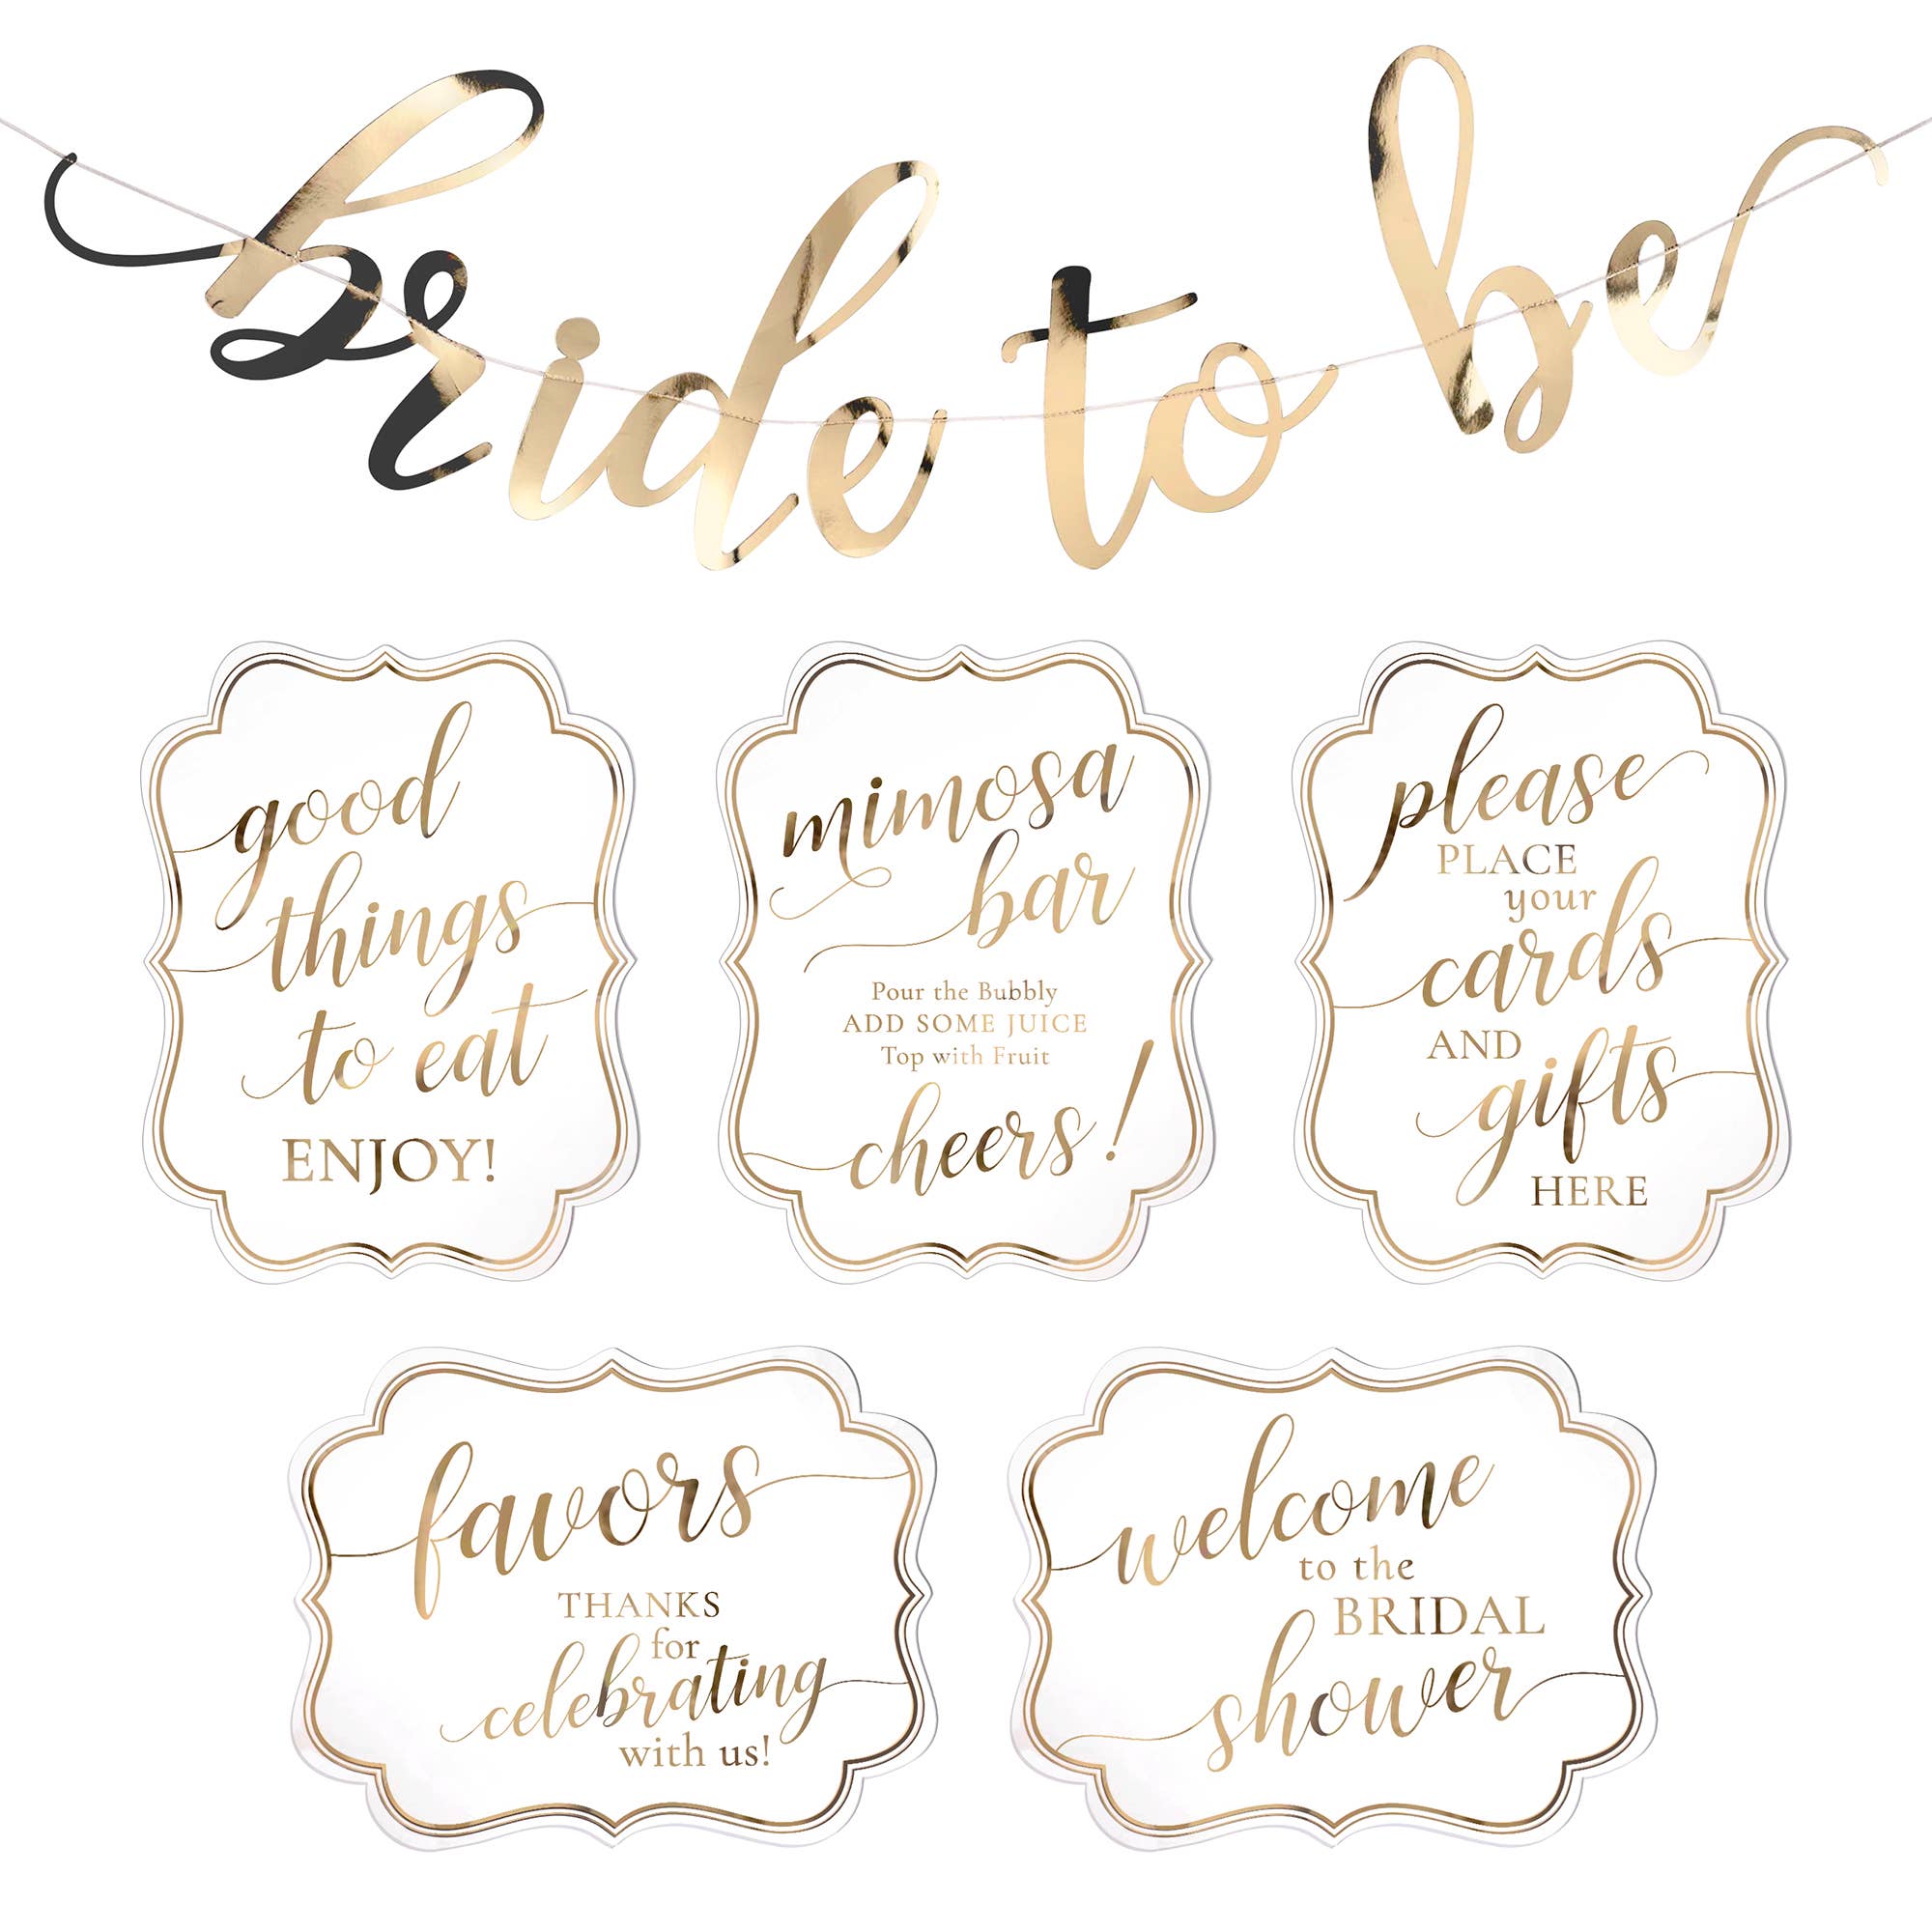 bride to be
good
things
to eat
ENJOY!
mimosa
bar
Pour the Bubbly
ADD SOME JUICE
Top with Fruit
cheers!
please
PLACE
your
cards
AND
gifts
HERE
favors
THANKS
for
celebrating
with us!
welcome
to the
BRIDAL
shower